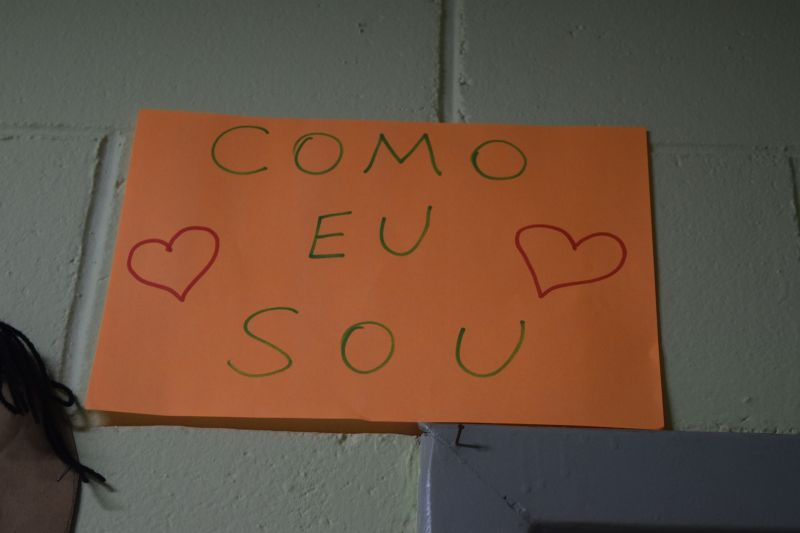 COMO
EU
SOU